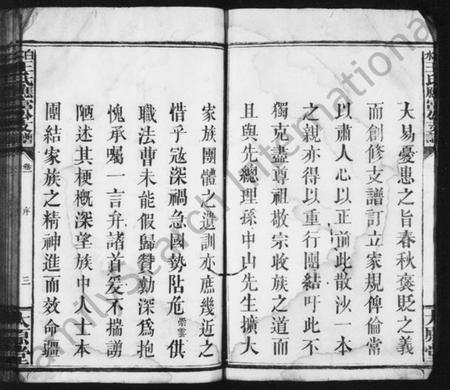 大易憂患之旨春秋褒貶之義
而創修支譜訂立家規俾倫常
以肅人心以正前此散沙一本
之親亦得以重行團結吁此不
獨克盡尊祖敬宗收族之道而
且與先總理孫中山先生擴大
家族團體之遺訓亦庶幾近之
惜乎寇深禍急國勢阽危棠雲供
職法曹未能假歸贊勷深爲抱
愧承囑一言弁諸首爰不揣謭
陋述其梗概深望族中人士本
團結家族之精神進而效命疆
卷 序 三
太原堂
FamilySearch International